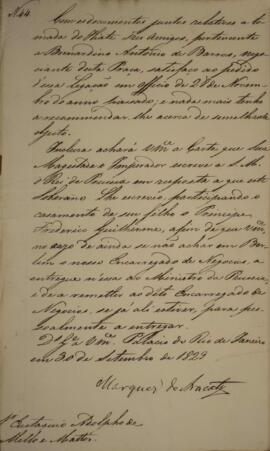 N. 44
Com os documentos juntos relativos a to-
mada do Hiate Tres Amigos, pertencente
a Bernardino Antonio de Barros, nego-
ciante desta Praça, satisfaço ao pedido
d'essa Legação em Officio de 21 de Novem-
bro do anno passado, e nada mais tenho
a recommendar-lhe acerca de semelhante
objecto.
Inclusa achará V.Mce a Carta que Sua
Magestade o Imperador escreve a S. M.
o Rei de Prussia em resposta a que este
Soberano lhe escreveo, participando o
casamento de seu filho o Principe
Frederico Guilherme, afim de que V.Mce
no caso de ainda se não achar em Ber-
lim o nosso Encarregado de Negocios, a
entregue n'essa ao Ministro da Prussia,
e de a remetter ao dito Encarregado de
Negocios, se já ali estiver, para pes-
soalmente a entregar.
D.s G.e a V.Mce Palacio do Rio de Janeiro
em 30 de Setembro de 1829
Marquez de Aracaty
Sr. Eustaquio Adolpho de
Mello e Mattos.